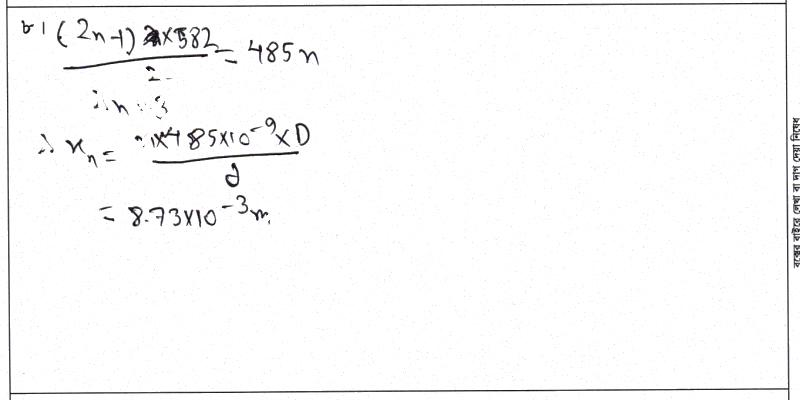 ৮। (2n-1) × 582 / 2 = 485n
∴ n = 3
∴ xₙ = ×485×10⁻⁹×D / d
= 8.73×10⁻³ m.
বক্সের বাইরে লেখা বা দাগ দেয়া নিষেধ